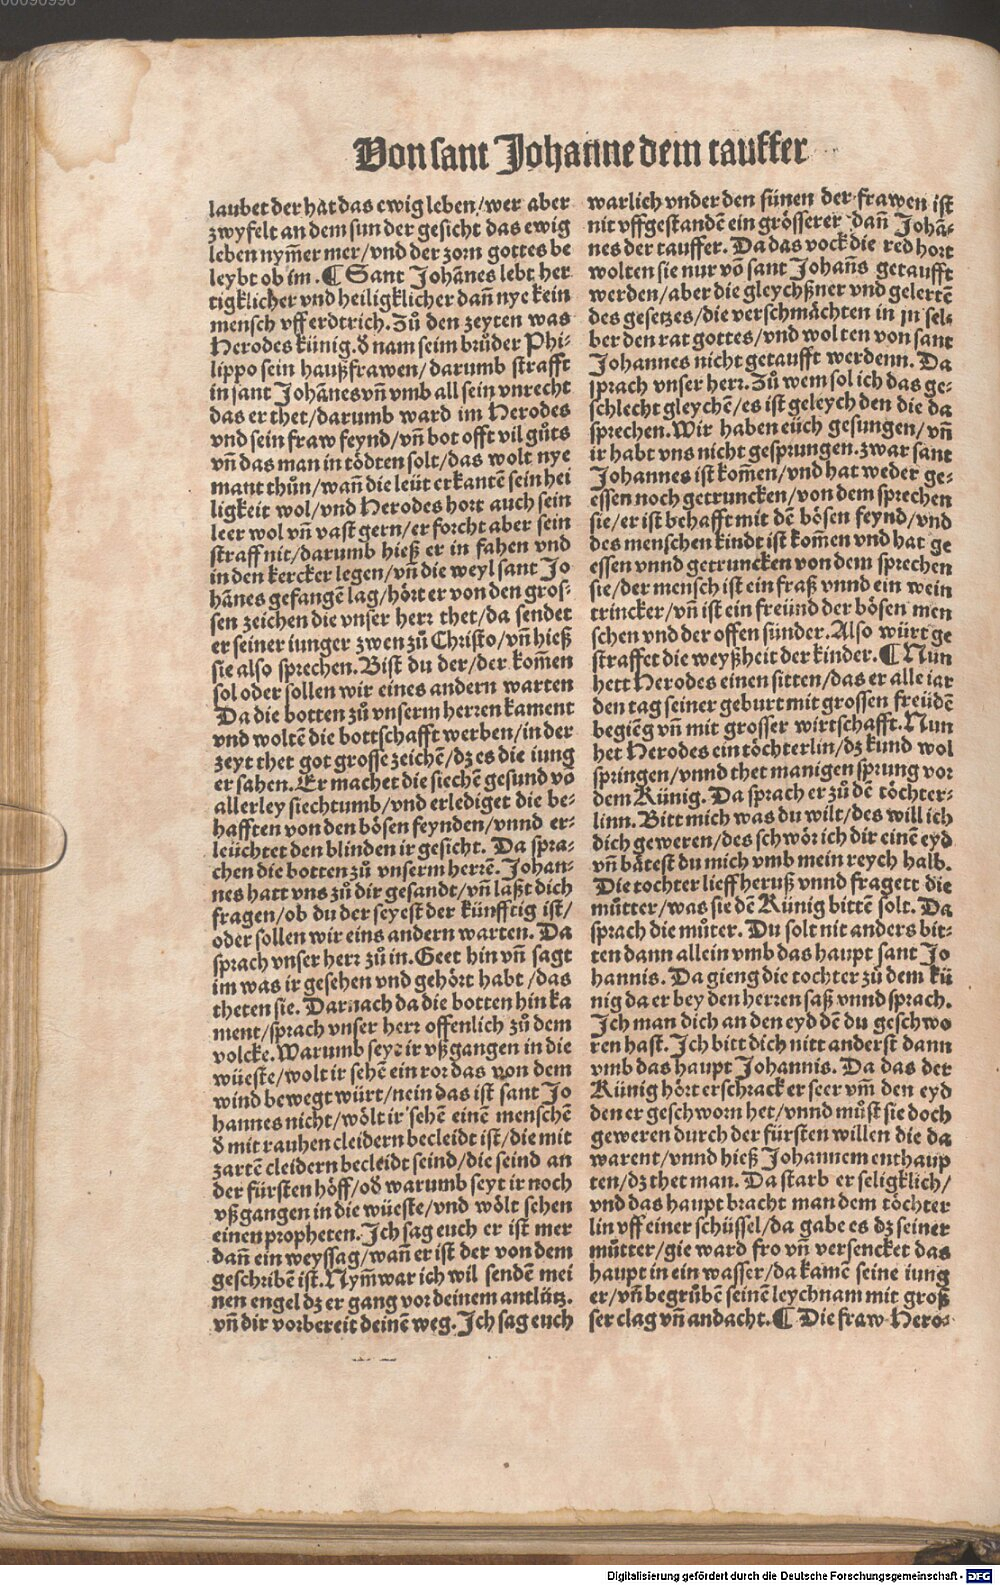 00090996
Von sant Johanne dem tauffer
laubet der hat das ewig leben/wer aber
zwyfelt an dem sun der gesicht das ewig
leben nym̃er mer/vnd der zorn gottes be
leybt ob im. ¶ Sant Johãnes lebt her
tigklicher vnd heiligklicher dañ nye kein
mensch vff erdtrich. Zů den zeyten was
Herodes künig. d̕ nam seim brůder Phi-
lippo sein haußfrawen/darumb strafft
in sant Johãnes vñ vmb all sein vnrecht
das er thet/darumb ward im Herodes
vnd sein fraw feynd/vñ bot offt vil gůts
vñ das man in tödten solt/das wolt nye
mant thůn/wañ die leüt erkantẽ sein hei
ligkeit wol/vnd Herodes hort auch sein
leer wol vñ vast gern/er forcht aber sein
straff nit/darumb hieß er in fahen vnd
in den kercker legen/vñ die weyl sant Jo
hãnes gefangẽ lag/hört er von den gros-
sen zeichen die vnser herr thet/da sendet
er seiner iunger zwen zů Christo/vñ hieß
sie also sprechen. Bist du der/der kom̃en
sol oder sollen wir eines andern warten
Da die botten zů vnserm herren kament
vnd woltẽ die bottschafft werben/in der
zeyt thet got grosse zeichẽ/dz es die iung
er sahen. Er machet die siechẽ gesund võ
allerley siechtumb/vnd erlediget die be-
hafften von den bösen feynden/vnnd er-
leüchtet den blinden ir gesicht. Da spra-
chen die botten zů vnserm herrẽ. Johan-
nes hatt vns zů dir gesandt/vñ laßt dich
fragen/ob du der seyest der künfftig ist/
oder sollen wir eins andern warten. Da
sprach vnser herr zů in. Geet hin vñ sagt
im was ir gesehen vnd gehört habt/das
theten sie. Darnach da die botten hin ka
ment/sprach vnser herr offenlich zů dem
volcke. Warumb seyt ir vßgangen in die
wüeste/wolt ir sehẽ ein ror das von dem
wind bewegt würt/nein das ist sant Jo
hannes nicht/wölt ir sehẽ einẽ menschẽ
d̕ mit rauhen cleidern becleidt ist/die mit
zartẽ cleidern becleidt seind/die seind an
der fürsten höff/od̕ warumb seyt ir noch
vßgangen in die wüeste/vnd wölt sehen
einen propheten. Ich sag euch er ist mer
dañ ein weyssag/wañ er ist der von dem
geschribẽ ist. Nym̃ war ich wil sendẽ mei
nen engel dz er gang vor deinem antlütz.
vñ dir vorbereit deinẽ weg. Ich sag euch
warlich vnder den sünen der frawen ist
nit vffgestandẽ ein grösserer dañ Johã-
nes der tauffer. Da das vock die red hort
wolten sie nur võ sant Johañs getaufft
werden/aber die gleychßner vnd gelertẽ
des gesetzes/die verschmächten in jn sel-
ber den rat gottes/vnd wolten von sant
Johannes nicht getaufft werdenn. Da
sprach vnser herr. Zů wem sol ich das ge-
schlecht gleychẽ/es ist geleych den die da
sprechen. Wir haben eüch gesungen/vñ
ir habt vns nicht gesprungen. zwar sant
Johannes ist kom̃en/vnd hat weder ge-
essen noch getruncken/von dem sprechen
sie/er ist behafft mit dẽ bösen feynd/vnd
des menschen kindt ist kom̃en vnd hat ge
essen vnnd getruncken von dem sprechen
sie/der mensch ist ein fraß vnnd ein wein
trincker/vñ ist ein freünd der bösen men
schen vnd der offen sünder. Also würt ge
straffet die weyßheit der kinder. ¶ Nun
hett Herodes einen sitten/das er alle iar
den tag seiner geburt mit grossen freüdẽ
begieng vñ mit grosser wirtschafft. Nun
het Herodes ein töchterlin/dz kund wol
springen/vnnd thet manigen sprung vor
dem Künig. Da sprach er zů dẽ töchter-
linn. Bitt mich was du wilt/des will ich
dich geweren/des schwör ich dir einẽ eyd
vñ bätest du mich vmb mein reych halb.
Die tochter lieff heruß vnnd fragett die
můtter/was sie dẽ Künig bittẽ solt. Da
sprach die můter. Du solt nit anders bit-
ten dann allein vmb das haupt sant Jo
hannis. Da gieng die tochter zů dem kü
nig da er bey den herren saß vnnd sprach.
Ich man dich an den eyd dẽ du geschwo
ren hast. Ich bitt dich nitt anderst dann
vmb das haupt Johannis. Da das der
Künig hört erschrack er seer vm̃ den eyd
den er geschworn het/vnnd můst sie doch
geweren durch der fürsten willen die da
warent/vnnd hieß Johannem enthaup
ten/dz thet man. Da starb er seligklich/
vnd das haupt bracht man dem töchter
lin vff einer schüssel/da gabe es dz seiner
můtter/gie ward fro vñ versencket das
haupt in ein wasser/da kamẽ seine iung
er/vñ begrůben seinẽ leychnam mit groß
ser clag vñ andacht. ¶ Die fraw Hero-
Digitalisierung gefördert durch die Deutsche Forschungsgemeinschaft - DFG